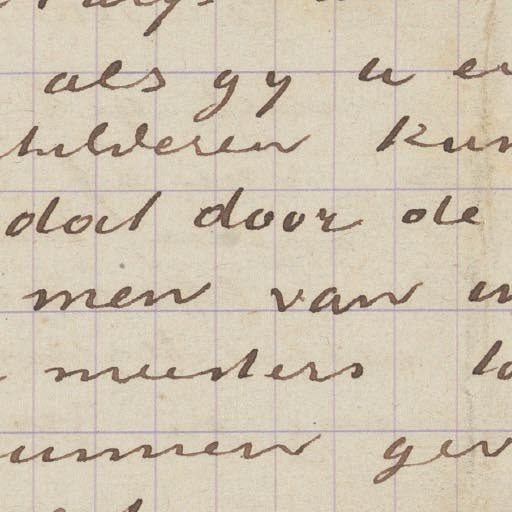 als gy u en
hilderen kun
dat door de
men van un
meesters to
unnen gev